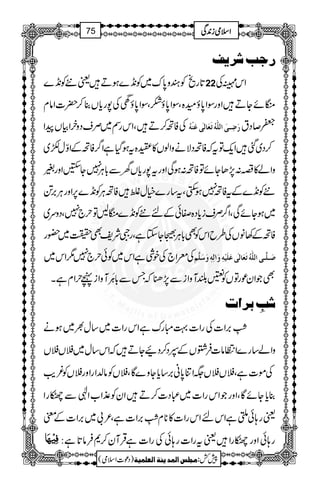 اسلامی زندگی
75
رجب شریف
اس مہینہ کی 22 تاریخ کو ہندو پاک میں کونڈے ہوتے ہیں یعنی نئے کونڈے
منگائے جاتے ہیں اور سوا پاؤ میدہ، سوا پاؤ شکر، سوا پاؤ گھی کی پوریاں بنا کر حضرت امام
جعفر صادق رَضِیَ اللہُ تَعَالٰی عَنْہُ کی فاتحہ کرتے ہیں، اس رسم میں صرف دو خرابیاں پیدا
کر دی گئیں ایک تو یہ کہ فاتحہ دلانے والوں کا عقیدہ یہ ہو گیا ہے کہ اگر فاتحہ کے اوّل لکڑی
والے کا قصہ نہ پڑھا جائے تو فاتحہ نہ ہو گی اور یہ پوریاں گھر سے باہر نہیں جاسکتیں اور بغیر
نئے کونڈے کے یہ فاتحہ نہیں ہو سکتی، یہ سارے خیال غلط ہیں فاتحہ ہر کونڈے پر اور ہر برتن
میں ہو جائے گی، اگر صرف زیادہ صفائی کے لئے نئے کونڈے منگالیں تو حرج نہیں، دوسری
فاتحہ کے کھانوں کی طرح اس کو بھی باہر بھیجا جاسکتا ہے، رجبی شریف بھی حقیقت میں حضور
صَلَّی اللہُ تَعَالٰی عَلَیْہِ وَاٰلِہٖ وَسَلَّم کی معراج کی خوشی ہے اس میں کوئی حرج نہیں مگر اس میں
بھی جوان عورتوں کو نعتیں بلند آواز سے پڑھنا کہ جس سے باہر آواز پہنچے حرام ہے۔
شبِ برات
شب برات کی رات بہت مبارک ہے اس رات میں سال بھر میں ہونے
والے سارے انتظامات فرشتوں کے سپرد کر دیئے جاتے ہیں کہ اس سال میں فلاں فلاں
کی موت ہے، فلاں، فلاں جگہ اتنا پانی برسایا جاوے گا، فلاں کو مالدار اور فلاں کو غریب
بنایا جائے گا، اور جو اس رات میں عبادت کرتے ہیں ان کو عذاب الٰہی سے چھٹکارا
یعنی رہائی ملتی ہے اس لئے اس رات کا نام شب برات ہے، عربی میں برات کے معنٰے
رہائی اور چھٹکارا ہیں یعنی یہ رات رہائی کی رات ہے قرآن کریم فرماتا ہے : فِیْہَا
پیش کش: مجلس المدینة العلمیة (دعوتِ اسلامی)